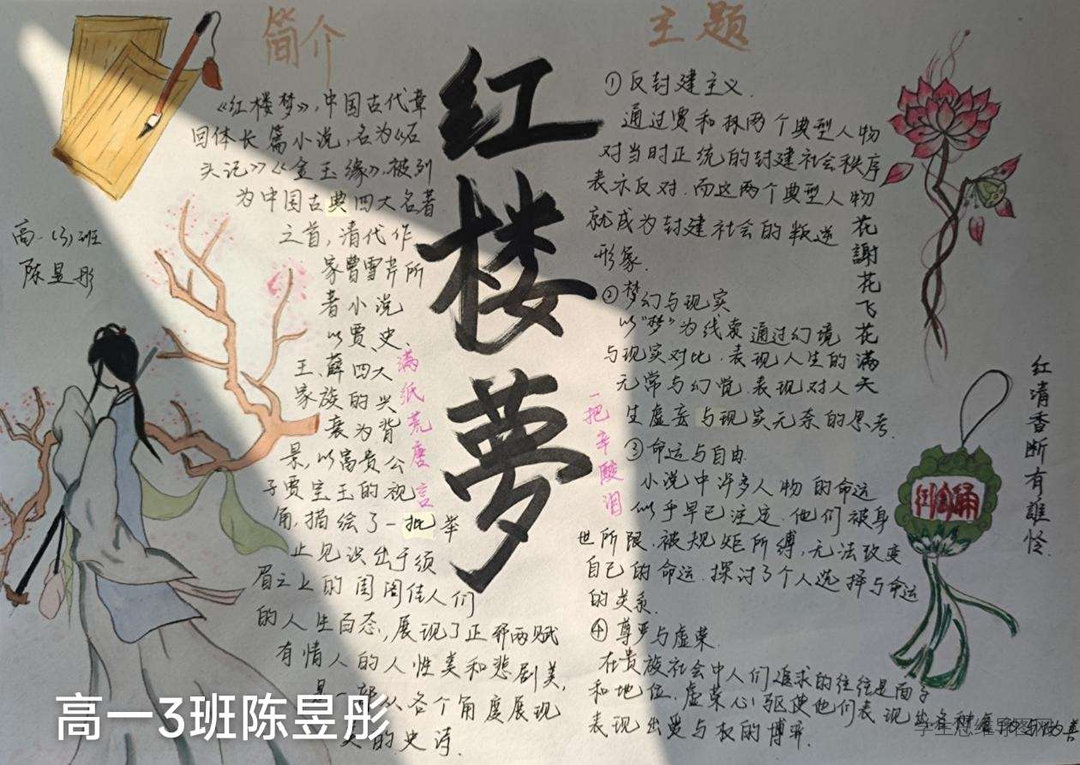 简介
《红楼梦》,中国古代章
回体长篇小说,名为《石
头记》《金玉缘》,被列
为中国古典四大名著
之首,清代作
家曹雪芹所
著小说
以贾、史、
王、薛四大
家族的兴
衰为背
景,以富贵公
子贾宝玉的视
角,描绘了一批举
止见识出于须
眉之上的闺阁佳人们
的人生百态,展现了正邪两赋
有情人的人性美和悲剧美,
是一部从各个角度展现
的史诗.
高一(3)班
陈昱彤
满纸荒唐言
红楼梦
一把辛酸泪
主题
①反封建主义.
通过贾和林两个典型人物
对当时正统的封建社会秩序
表示反对.而这两个典型人物
就成为封建社会的叛逆
形象.
②梦幻与现实
以“梦”为线索通过幻境
与现实对比.表现人生的
无常与幻觉.表现对人
生虚妄与现实无奈的思考.
③命运与自由.
小说中许多人物的命运
似乎早已注定.他们被身
世所限.被规矩所缚.无法改变
自己的命运.探讨了个人选择与命运
的关系.
④尊严与虚荣.
在贵族社会中人们追求的往往是面子
和地位.虚荣心驱使他们表现
表现出爱与权的博弈.
花謝花飞花满天
红清香断有誰怪.
高一3班陈昱彤